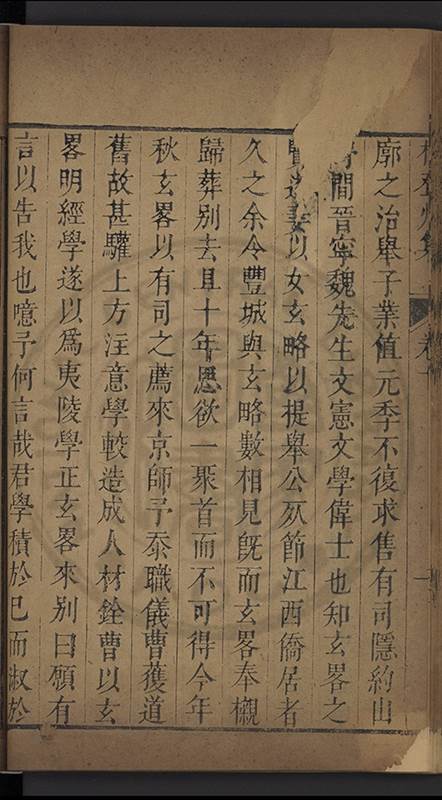 廓之治舉子業值元季不復求售有司隱約山
間晉寧魏先生文憲文學偉士也知玄畧之
以女玄略以提舉公夙節江西僑居者
久之余令豐城與玄略數相見旣而玄畧奉櫬
歸葬別去且十年思欲一聚首而不可得今年
秋玄畧以有司之薦來京師予忝職儀曹獲道
舊故甚驩上方注意學較造成人材銓曹以玄
畧明經學遂以爲夷陵學正玄畧來別曰願有
言以告我也噫予何言哉君學積於已而淑於